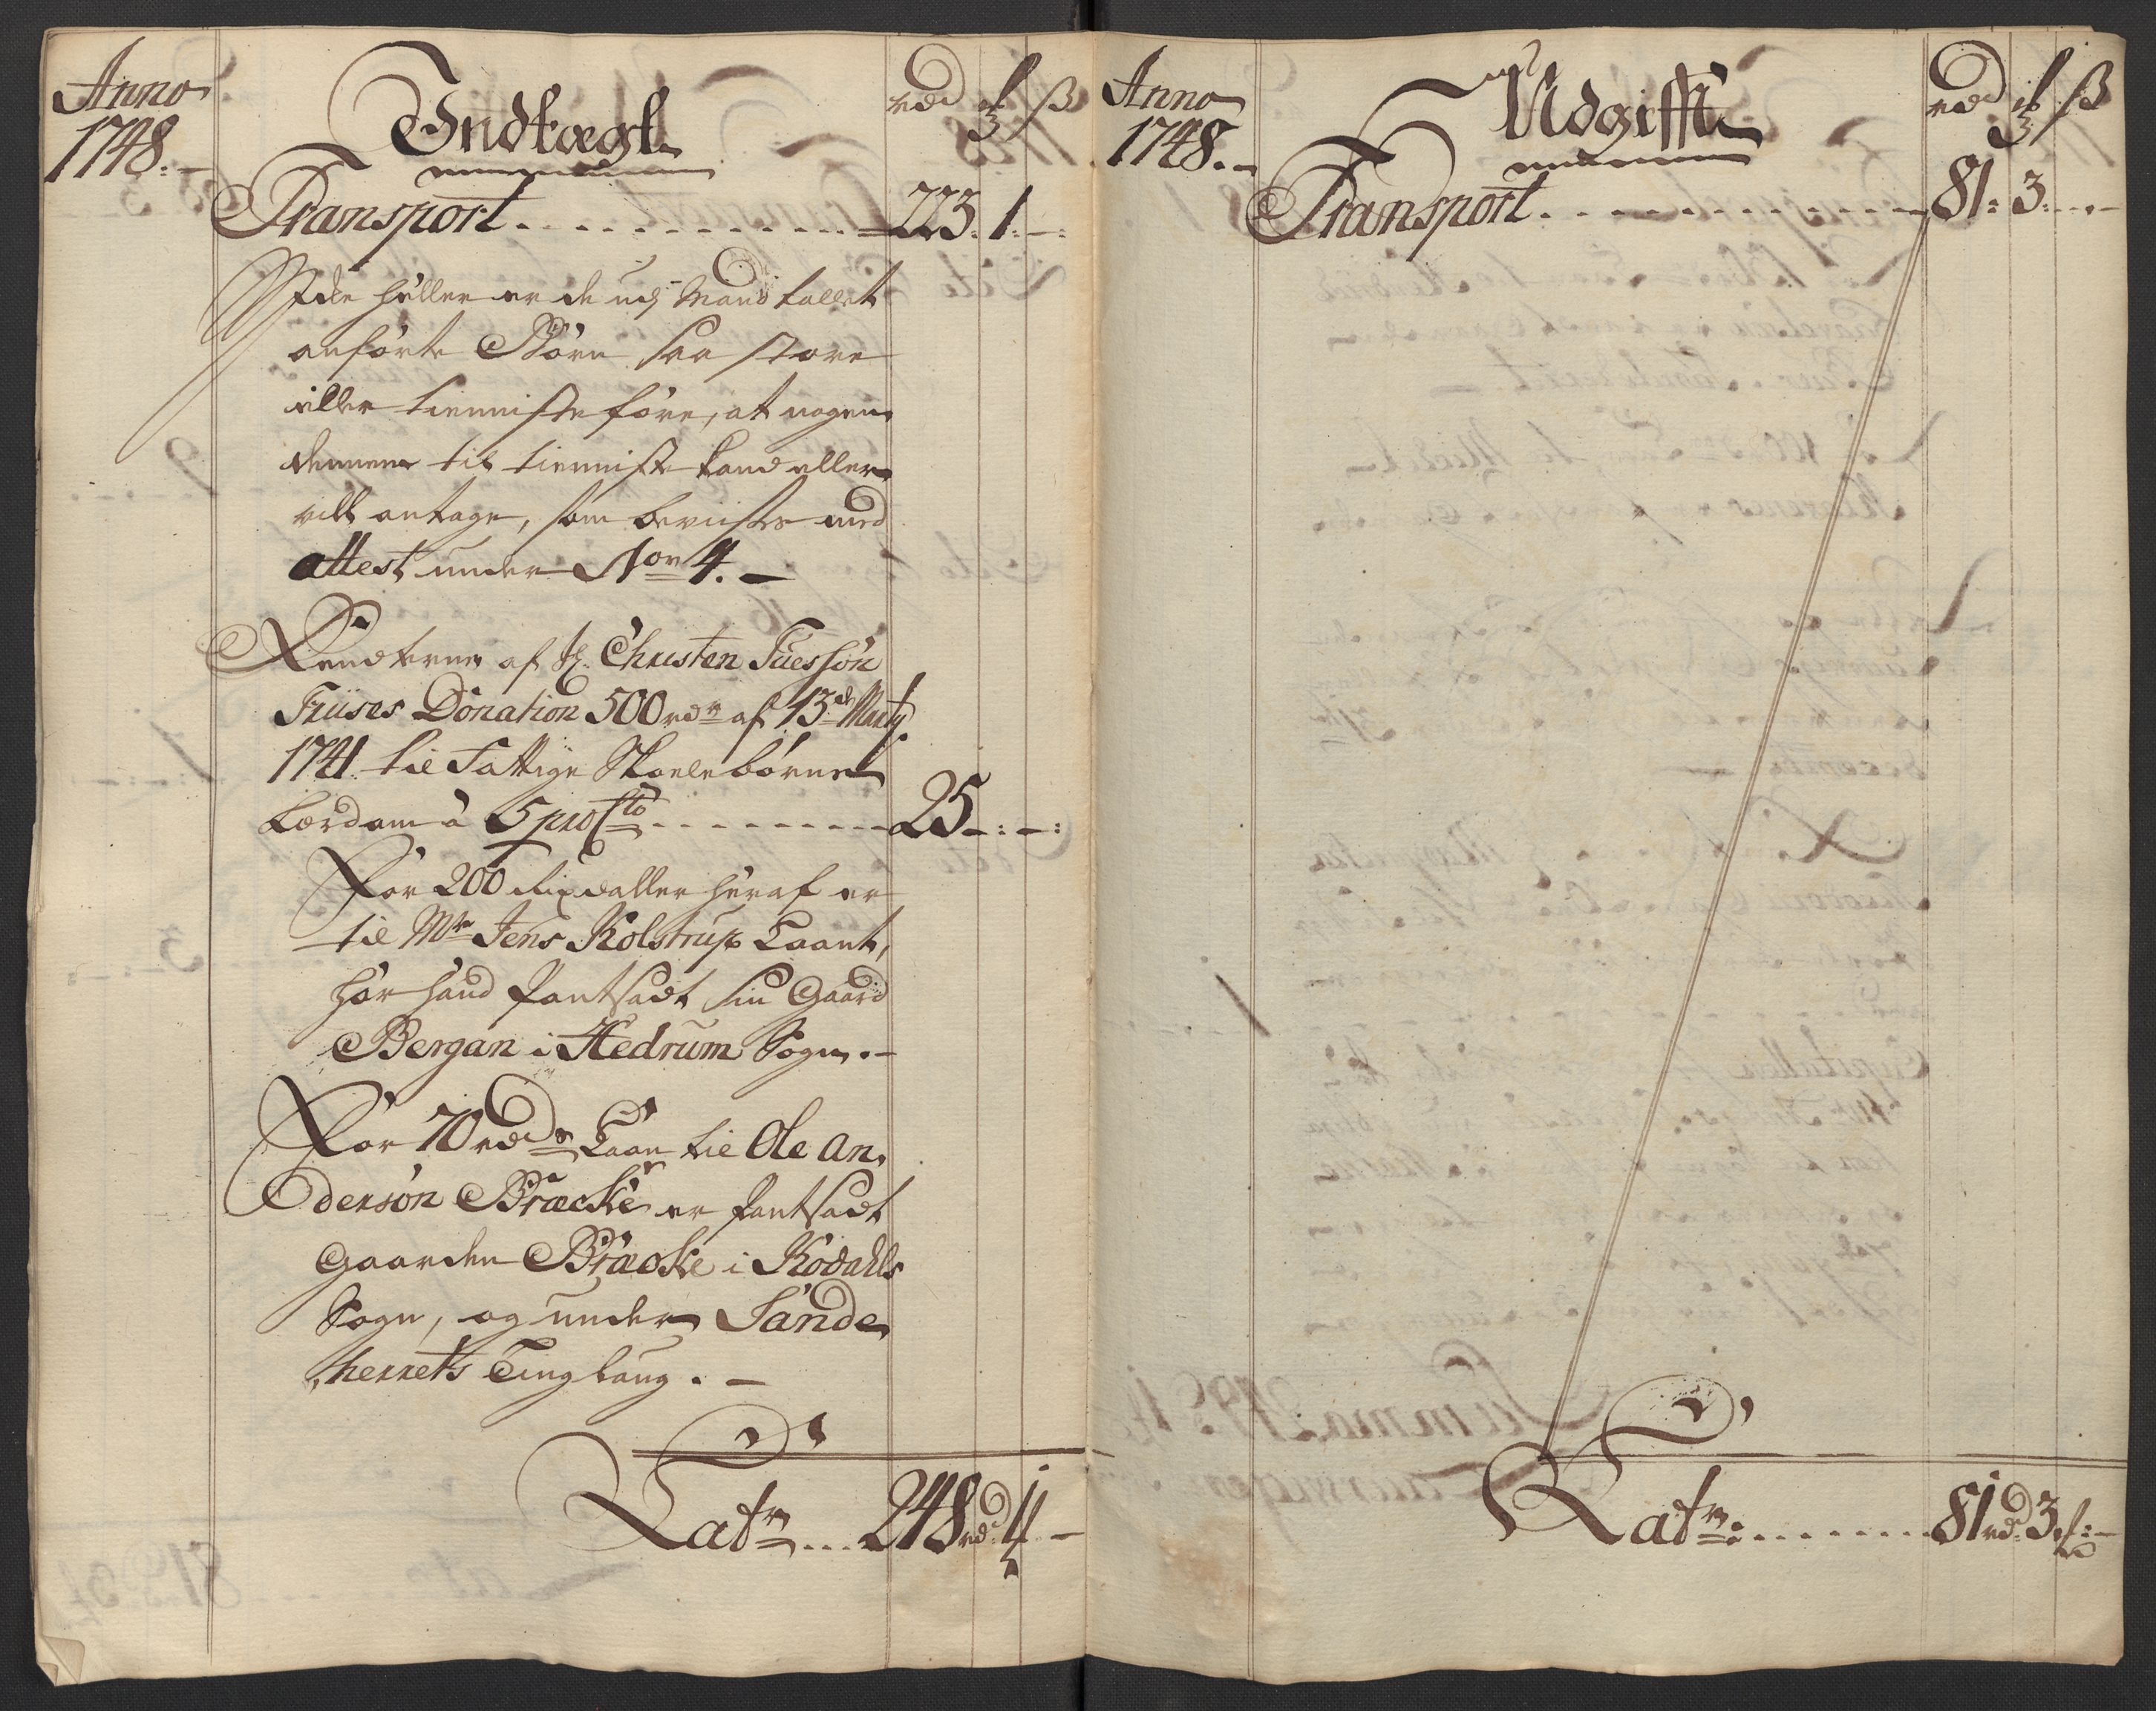 Anno
1748.
Indtægt
rdr ß
Transport 223. 1.
heller er de udj Mand tallet
anførte Børn saa store
eller tienniste føre, at nogen
dennem til tienniste kand eller
vill antage, som beviistes med
attest under No 4.
Renterne af H. Christen Tuessøn
Friises Donation 500 rdr af 13de Marty
1741. til Fattige Skolebørnes
Lærdom à 5 pro Cto 25
For 200 Rixdaller heraf er
til Mr Jens Kolstrup Laant,
har hand Pantsadt sin Gaard
Bergan i Hedrum Sogn.
For 70 rdr Laan til Ole An,
dersøn Bræcke er Pantsadt
Gaarden Bræcke i Kodahls
Sogn, og under Sande,
,herrets Tinglaug.
Latr 248 rd 1
Anno
1748.
Udgifft
rdr ß
Transport 81: 3
Latr 81 rd 3